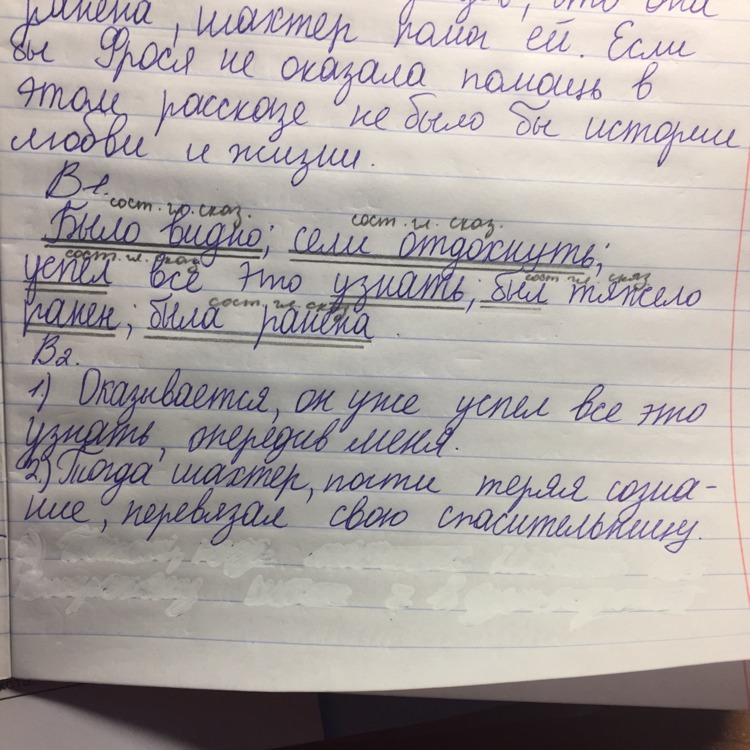 ранена, шахтер помог ей. Если
бы Фрося не оказала помощь в
этом рассказе не было бы истории
любви и жизни.
В1.
сост. гл. сказ. сост. гл. сказ.
Было видно; сели отдохнуть;
сост. гл. сказ. сост. гл. сказ
успел все это узнать; был тяжело
сост. гл. сказ
ранен; была ранена.
В2.
1) Оказывается, он уже успел все это
узнать, опередив меня.
2) Тогда шахтер, почти теряя созна-
ние, перевязал свою спасительницу.